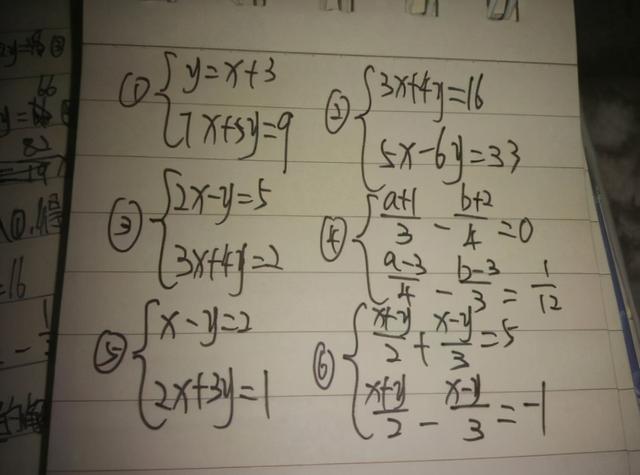 ① { y=x+3
7x+5y=9
② { 3x+4y=16
5x-6y=33
③ { 2x-y=5
3x+4y=2
④ { (a+1)/3 - (b+2)/4 = 0
(a-3)/4 - (b-3)/3 = 1/12
⑤ { x-y=2
2x+3y=1
⑥ { (x+y)/2 + (x-y)/3 = 5
(x+y)/2 - (x-y)/3 = -1
=16